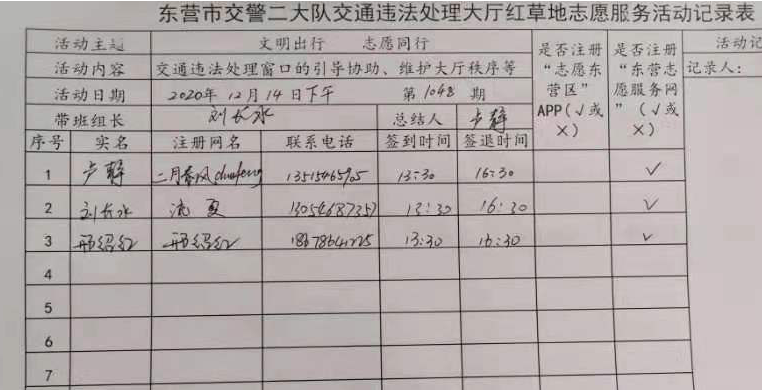 东营市交警二大队交通违法处理大厅红草地志愿服务活动记录表
活动主题 文明出行 志愿同行 是否注册“志愿东营区”APP(√或×) 是否注册“东营志愿服务网”(√或×) 活动记
活动内容 交通违法处理窗口的引导协助、维护大厅秩序等 记录人:
活动日期 2020年12月14日下午 第1048期
带班组长 刘长水 总结人 卢静
序号 实名 注册网名 联系电话 签到时间 签退时间
1 卢静 二月春风chunfeng 13:30 16:30 √
2 刘长水 流夏 13:30 16:30 √
3 邢绍红 邢绍红 13:30 16:30 √
4
5
6
7